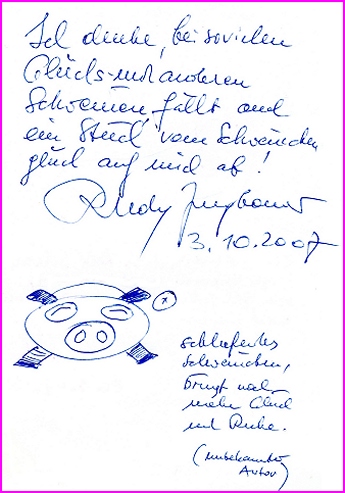 Ich denke, bei sovielen
Glücks- und anderen
Schweinen fällt auch
ein Stück vom Schweinchen
glück auf mich ab!
Rudy
3.10.2007
schlafendes
Schweinchen,
bringt noch
mehr Glück
und Ruhe.
(unbekannter
Autor)